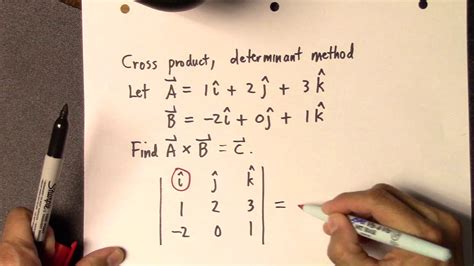 Cross product, determinant method
Let A⃗ = 1î + 2ĵ + 3k̂
B⃗ = -2î + 0ĵ + 1k̂
Find A⃗ × B⃗ = C⃗.
| î ĵ k̂ |
| 1 2 3 | =
| -2 0 1 |
Sharpie